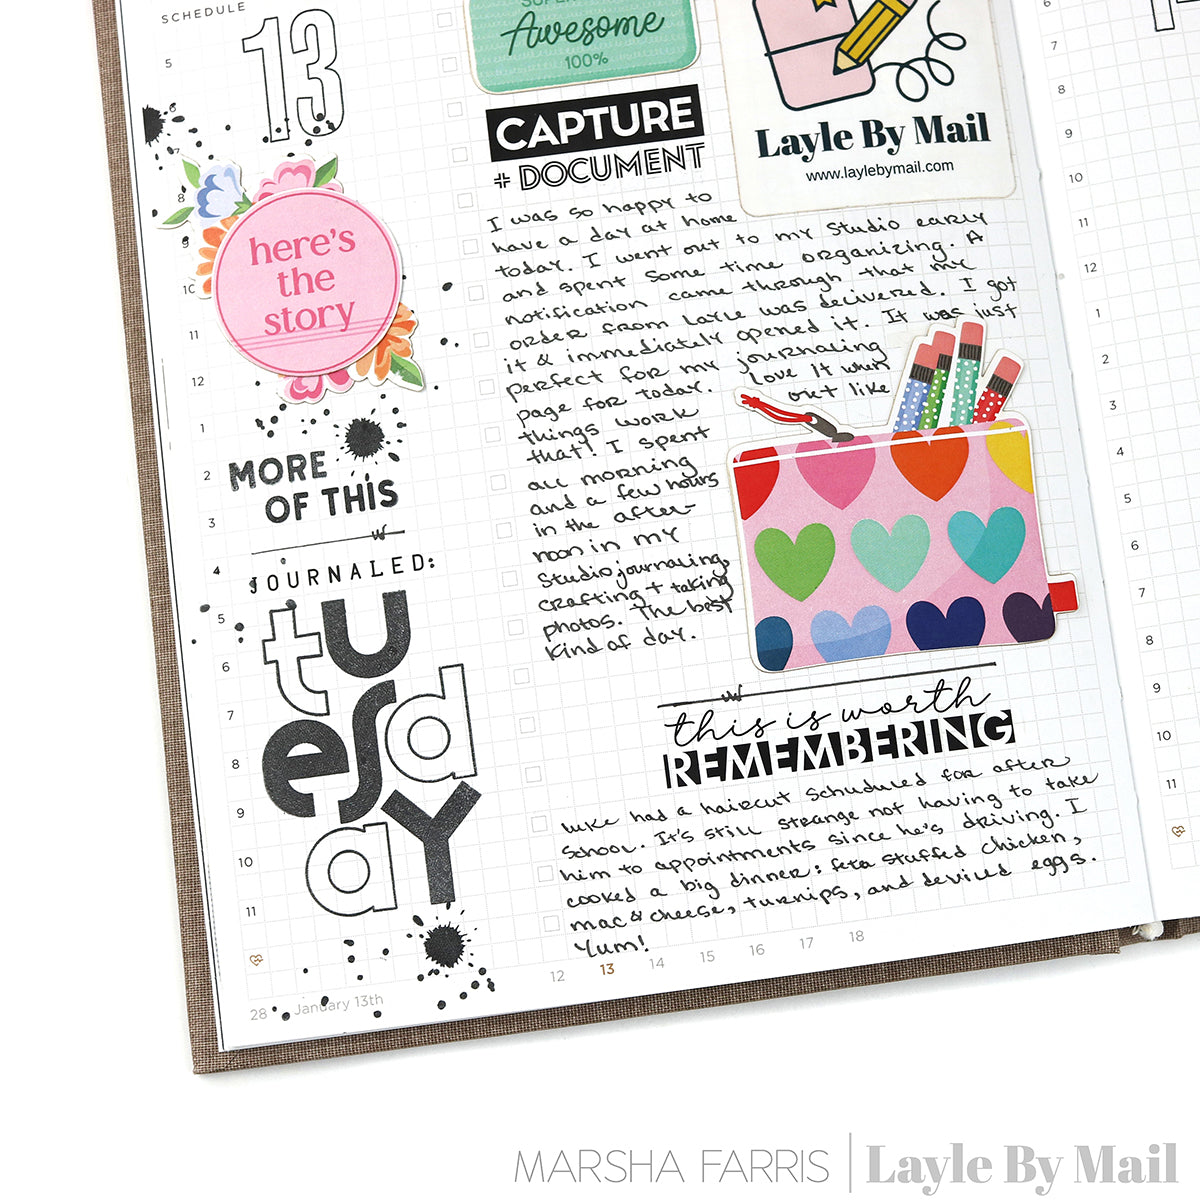 SCHEDULE
13
5
6
7
8
9
10
11
12
1
2
3
4
5
6
7
8
9
10
11
here's
the
story
MORE
OF THIS
JOURNALED:
tu
esd
aY
28
January 13th
Awesome
100%
CAPTURE
+ DOCUMENT
Layle By Mail
www.laylebymail.com
I was so happy to
have a day at home
today. I went out to my studio early
and spent some time organizing. A
notification came through that my
order from Layle was delivered. I got
it & immediately opened it. It was just
perfect for my journaling
page for today. Love it when
things work out like
that! I spent
all morning
and a few hours
in the after-
noon in my
studio journaling,
crafting + taking
photos. The best
kind of day.
this is worth
REMEMBERING
Luke had a haircut schuduled for after
school. It's still strange not having to take
him to appointments since he's driving. I
cooked a big dinner: feta stuffed chicken,
mac & cheese, turnips, and deviled eggs.
Yum!
12 13 14 15 16 17 18
6
7
8
9
10
11
12
1
2
3
4
5
6
7
8
9
10
11
MARSHA FARRIS | Layle By Mail